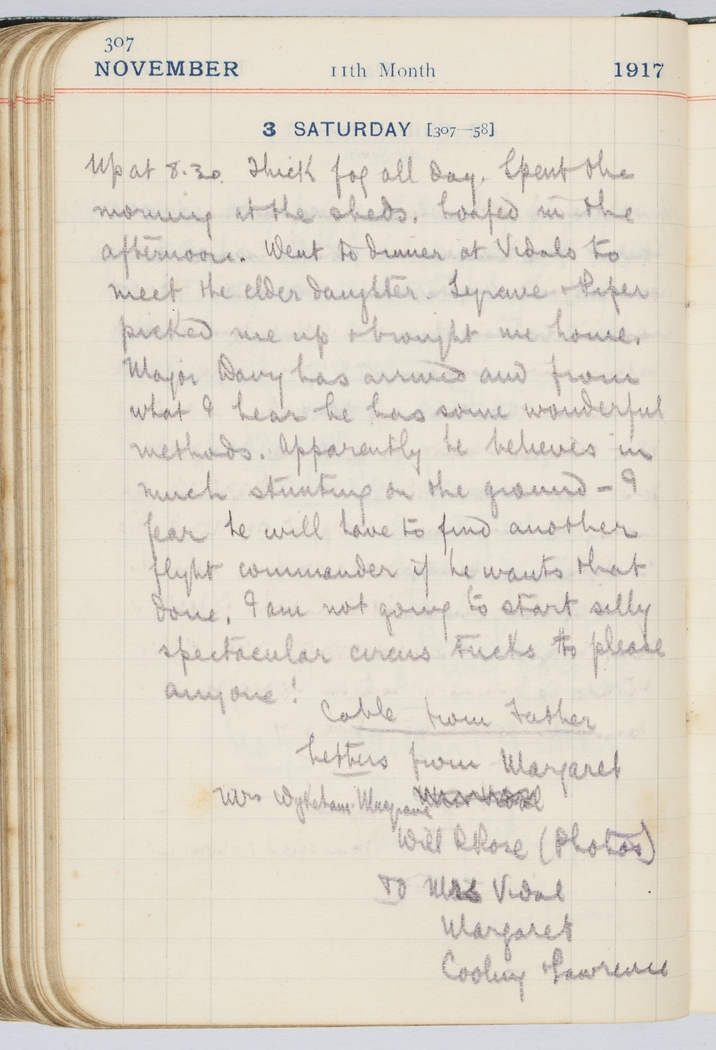 307
NOVEMBER 11th Month 1917
3 SATURDAY [307—58]
Up at 8.30. Thick fog all day. Spent the
morning at the sheds. Loafed in the
afternoon. Went to dinner at Vidals to
meet the elder daughter. & Piper
picked me up & brought me home.
Major Davy has arrived and from
what I hear he has some wonderful
methods. Apparently he believes in
much stunting on the ground – I
fear he will have to find another
flight commander if he wants that
done. I am not going to start silly
spectacular circus tricks to please
anyone!
Cable from Father
Letters from Margaret
Mrs Wykeham-Musgrave
Will R Rose (Photos)
To Mrs Vidal
Margaret
& Lawrence